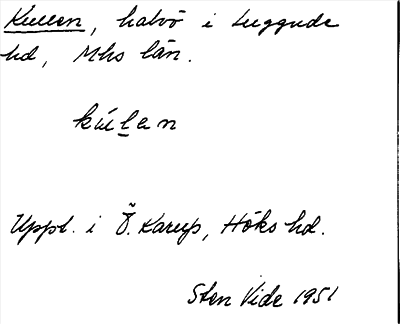 Kullen, halvö i Luggude
hd, Mhs län.
kúl̲an
Uppt. i Ö. Karup, Höks hd.
Sten Vide 1951